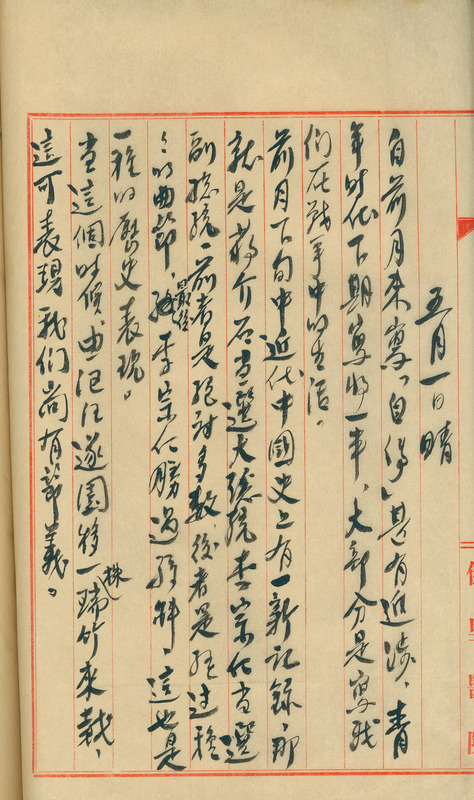 五月一日 晴
自前月來寫「自傳」甚有進步，青
年時代下期寫將一半，大部分是寫我
们在戰爭中的生活。
前月下旬中近代中國史上有一新記錄，那
就是蔣介石当選大總統李宗仁当選
副總統，前者是絕對多數，後者是經過種
々的曲節，最後李宗仁勝過孫科，這也是
一種的歷史表現。
当這個时候由汜江遂園移一株瑞竹來栽，
這可表現我们尚有節義。